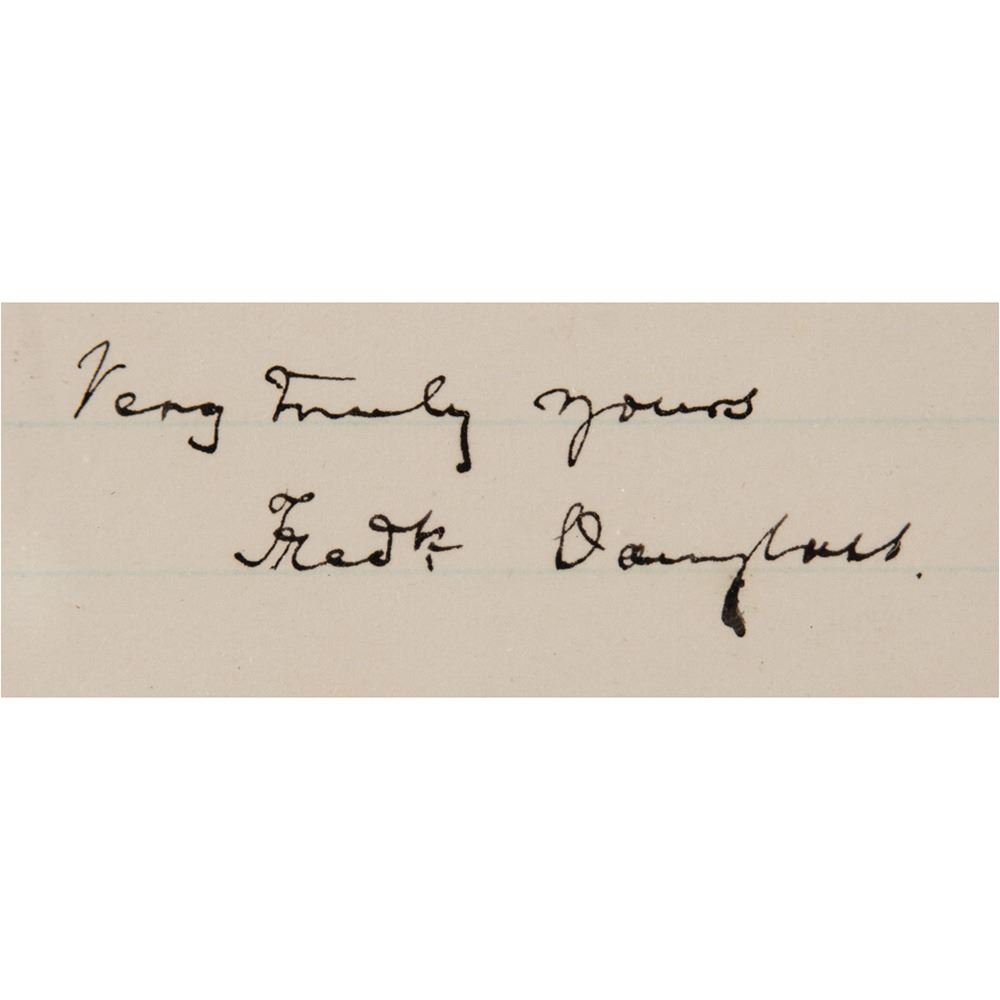 Very truly yours
Fredk Douglass.